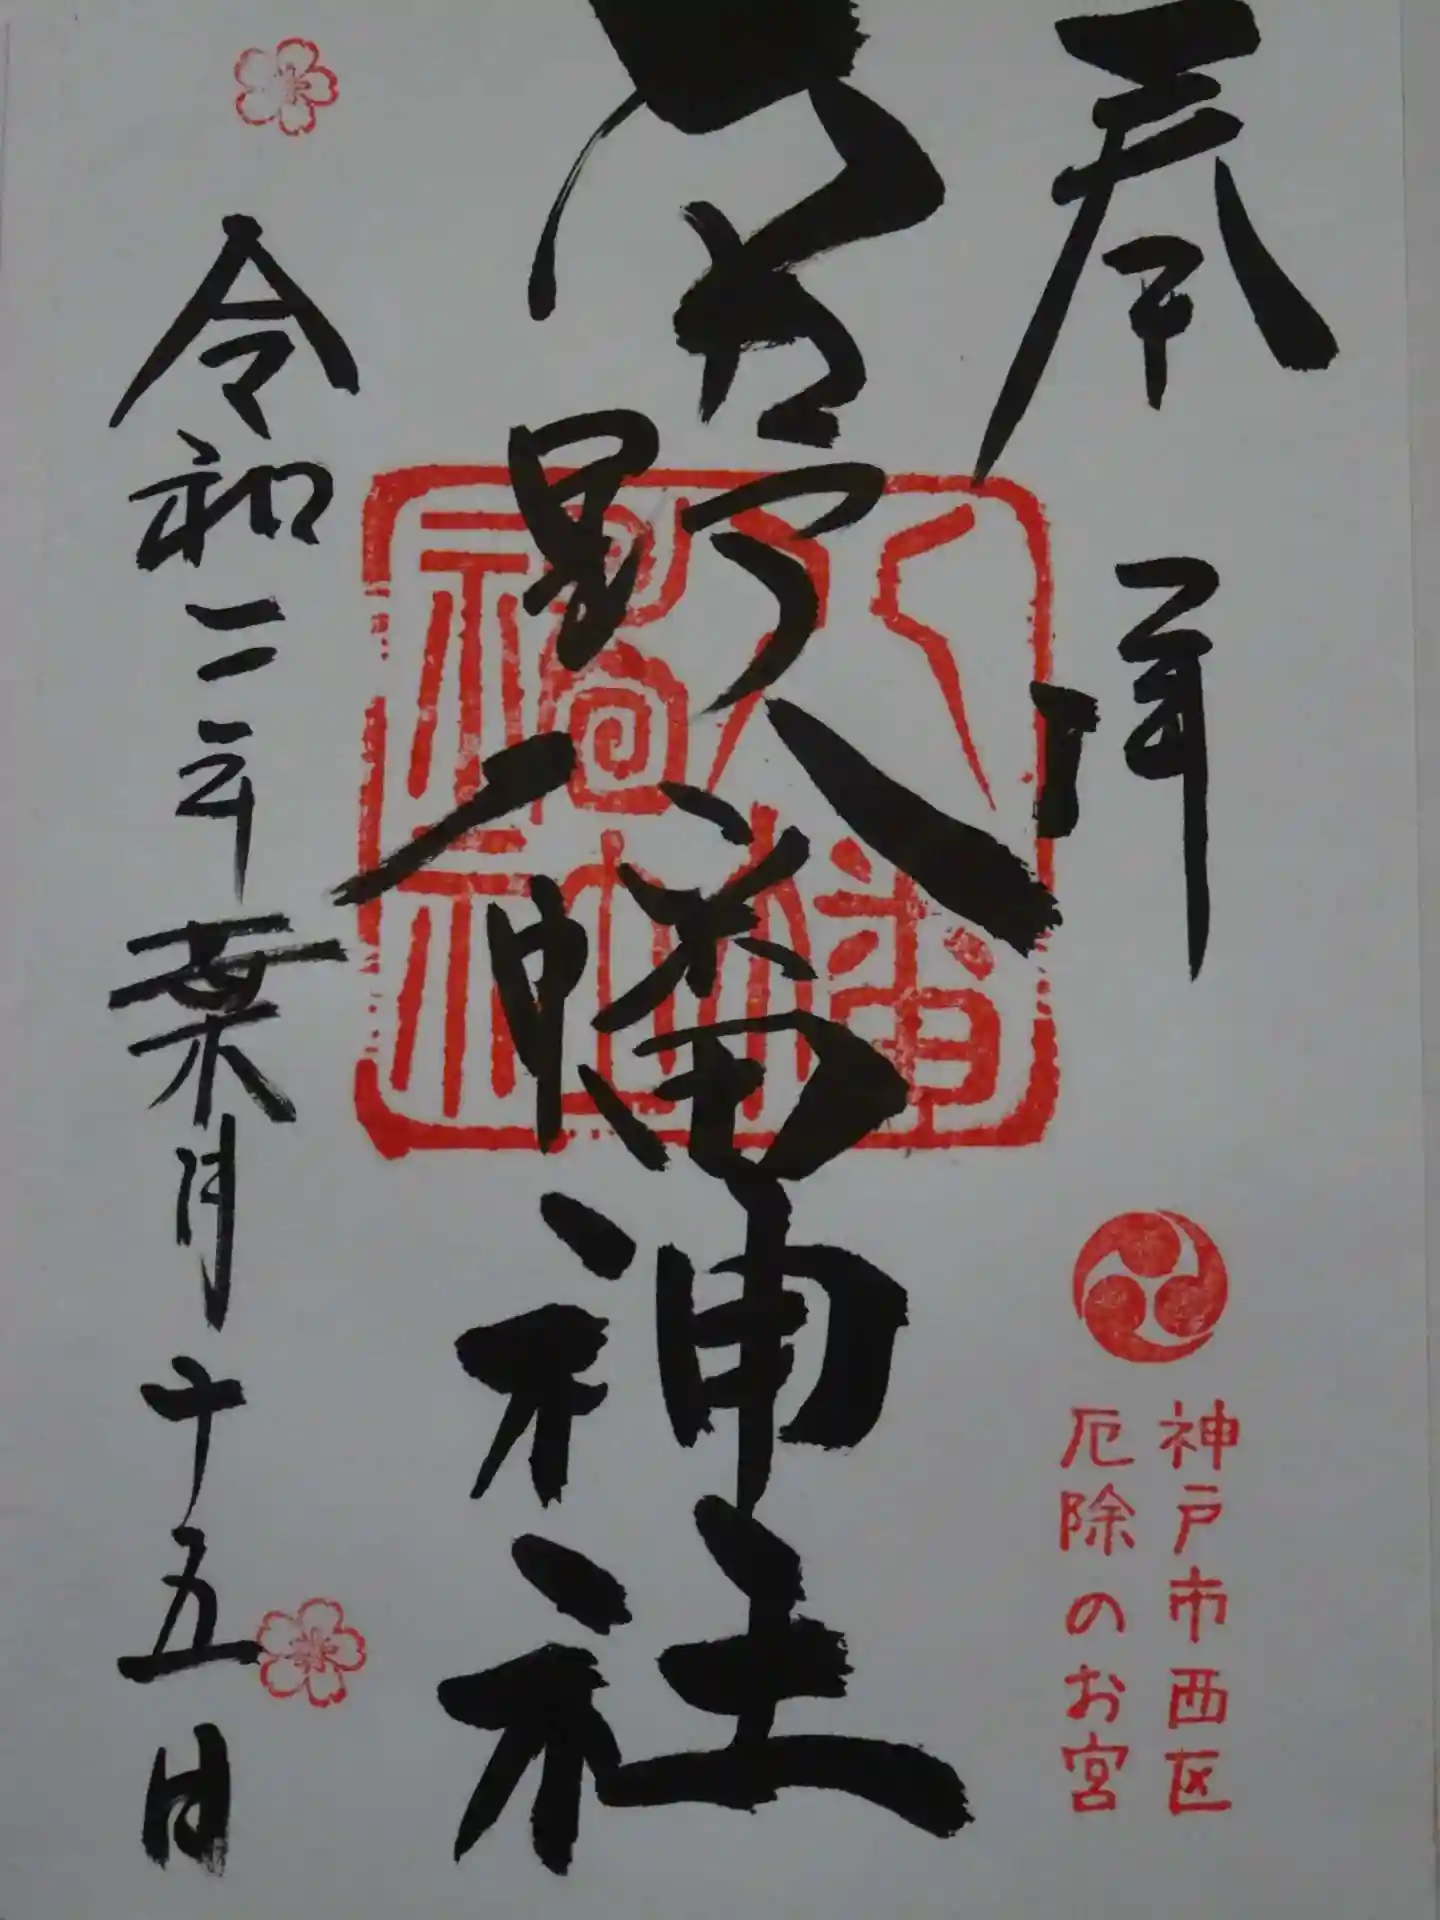 奉拝
神戸市西区
厄除のお宮
菅野八幡神社
令和二年葉月十五日